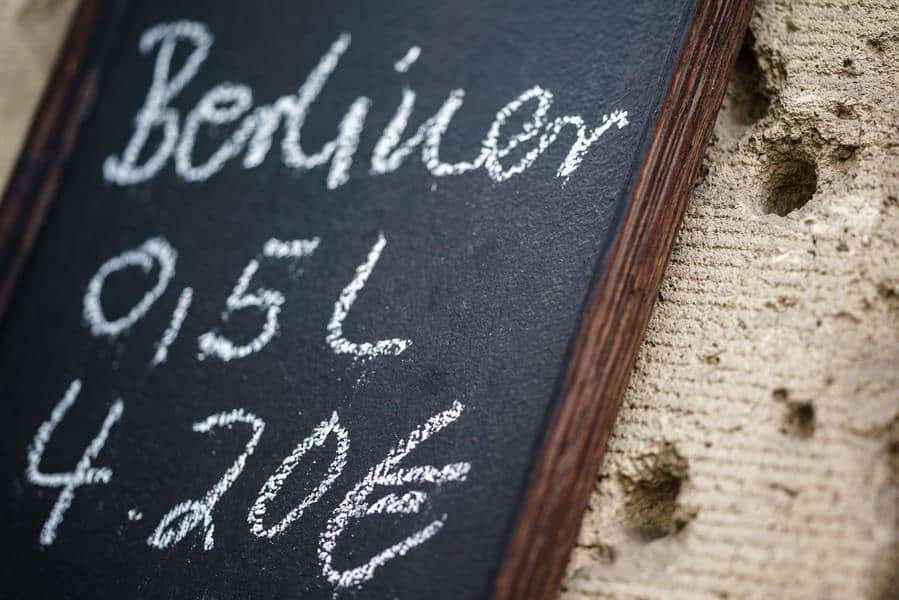 Berliner
0,5 L
4.20€